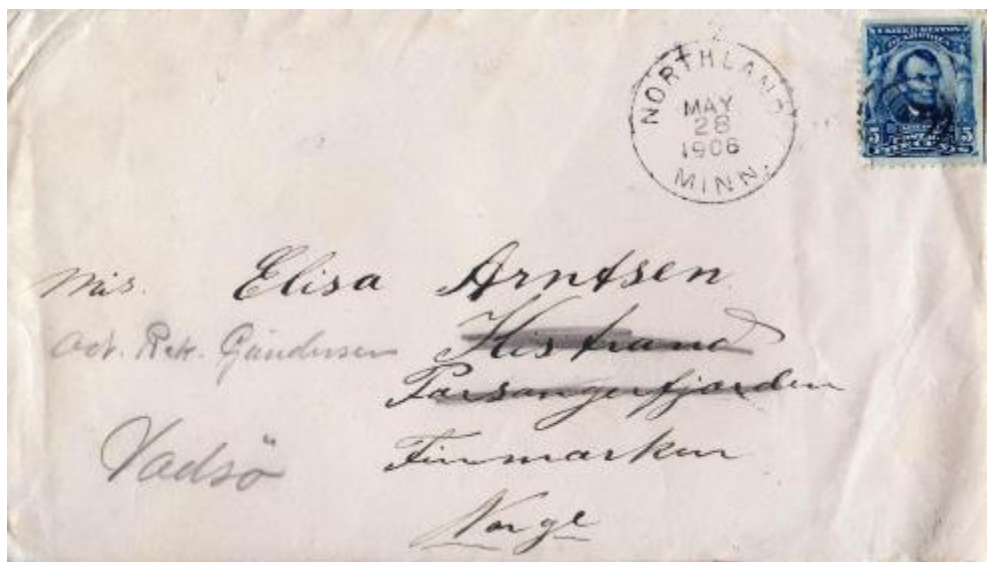 NORTHLAND
MAY
28
1906
MINN.
UNITED STATES
OF AMERICA
5 5
Mis. Elisa Arntsen
Kistrand
Adr. Gundersen
Porsangerfjorden
Vadsö
Finmarken
Norge